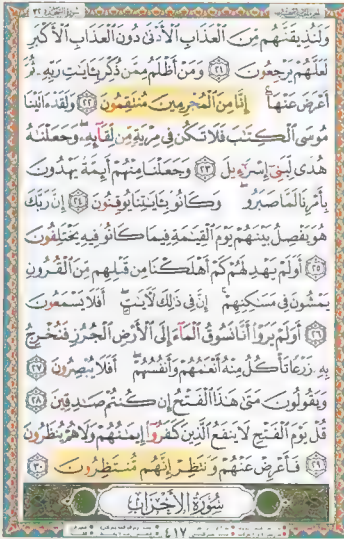 سورة السجدة ٣٢
وَلَنُذِيقَنَّهُم مِّنَ ٱلْعَذَابِ ٱلْأَدْنَىٰ دُونَ ٱلْعَذَابِ ٱلْأَكْبَرِ
لَعَلَّهُمْ يَرْجِعُونَ ٢١ وَمَنْ أَظْلَمُ مِمَّن ذُكِّرَ بِـَٔايَٰتِ رَبِّهِۦ ثُمَّ
أَعْرَضَ عَنْهَآ إِنَّا مِنَ ٱلْمُجْرِمِينَ مُنتَقِمُونَ ٢٢ وَلَقَدْ ءَاتَيْنَا
مُوسَى ٱلْكِتَٰبَ فَلَا تَكُن فِى مِرْيَةٍ مِّن لِّقَآئِهِۦ وَجَعَلْنَٰهُ
هُدًى لِّبَنِىٓ إِسْرَٰٓءِيلَ ٢٣ وَجَعَلْنَا مِنْهُمْ أَئِمَّةً يَهْدُونَ
بِأَمْرِنَا لَمَّا صَبَرُوا۟ وَكَانُوا۟ بِـَٔايَٰتِنَا يُوقِنُونَ ٢٤ إِنَّ رَبَّكَ
هُوَ يَفْصِلُ بَيْنَهُمْ يَوْمَ ٱلْقِيَٰمَةِ فِيمَا كَانُوا۟ فِيهِ يَخْتَلِفُونَ
٢٥ أَوَلَمْ يَهْدِ لَهُمْ كَمْ أَهْلَكْنَا مِن قَبْلِهِم مِّنَ ٱلْقُرُونِ
يَمْشُونَ فِى مَسَٰكِنِهِمْ إِنَّ فِى ذَٰلِكَ لَـَٔايَٰتٍ أَفَلَا يَسْمَعُونَ
٢٦ أَوَلَمْ يَرَوْا۟ أَنَّا نَسُوقُ ٱلْمَآءَ إِلَى ٱلْأَرْضِ ٱلْجُرُزِ فَنُخْرِجُ
بِهِۦ زَرْعًا تَأْكُلُ مِنْهُ أَنْعَٰمُهُمْ وَأَنفُسُهُمْ أَفَلَا يُبْصِرُونَ ٢٧
وَيَقُولُونَ مَتَىٰ هَٰذَا ٱلْفَتْحُ إِن كُنتُمْ صَٰدِقِينَ ٢٨
قُلْ يَوْمَ ٱلْفَتْحِ لَا يَنفَعُ ٱلَّذِينَ كَفَرُوٓا۟ إِيمَٰنُهُمْ وَلَا هُمْ يُنظَرُونَ
٢٩ فَأَعْرِضْ عَنْهُمْ وَٱنتَظِرْ إِنَّهُم مُّنتَظِرُونَ ٣٠
سُورَةُ ٱلْأَحْزَابِ
٤١٧